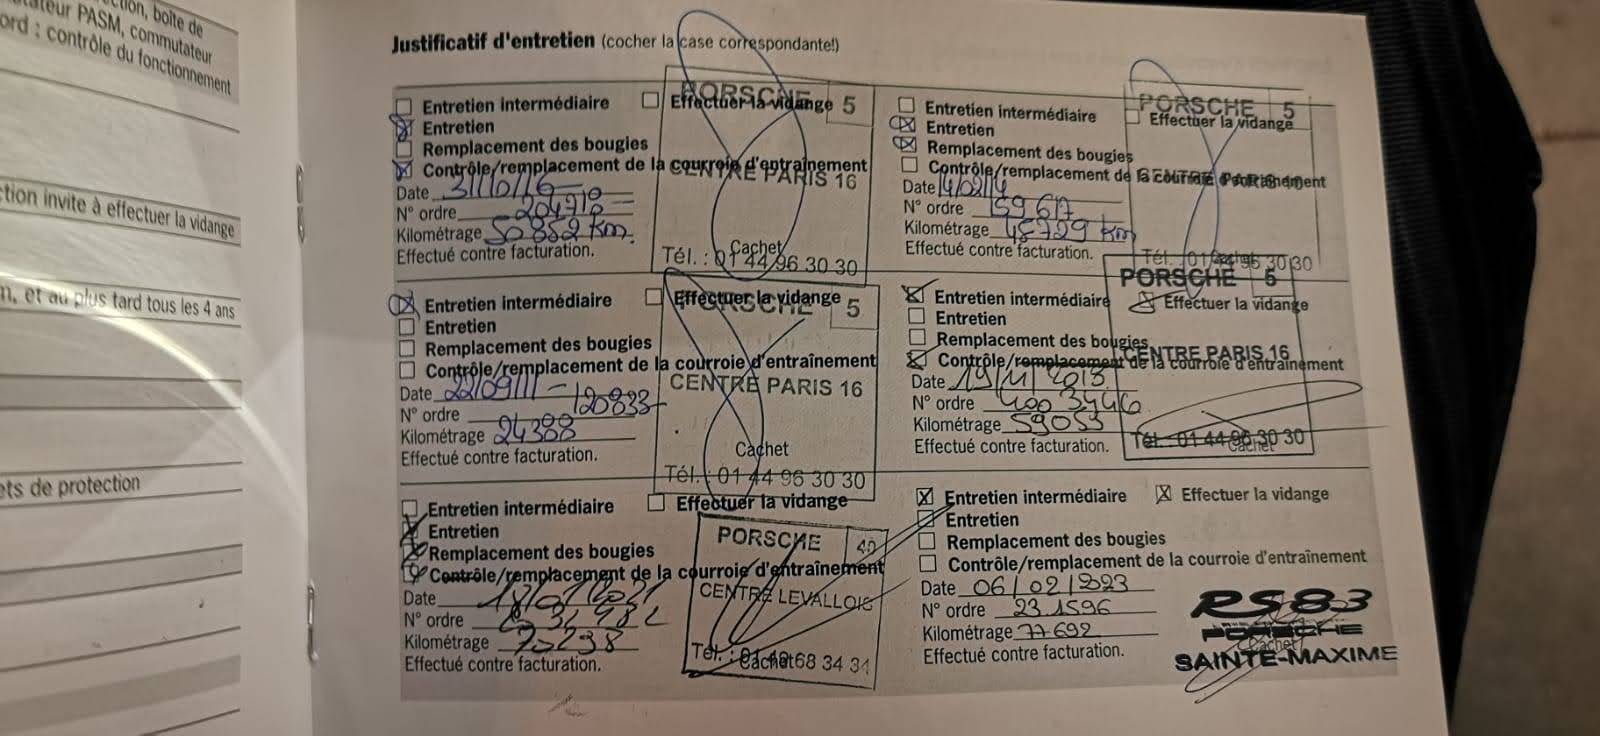 ction, boîte de
tateur PASM, commutateur
ord : contrôle du fonctionnement
ction invite à effectuer la vidange
n, et au plus tard tous les 4 ans
ets de protection
Justificatif d'entretien (cocher la case correspondante!)
Entretien intermédiaire
Effectuer la vidange
Entretien
Remplacement des bougies
Contrôle/remplacement de la courroie d'entraînement
Date 31/10/16
N° ordre 204710
Kilométrage 50852 Km
Effectué contre facturation.
PORSCHE 5
CENTRE PARIS 16
Cachet
Tél. : 01 44 96 30 30
Entretien intermédiaire
Effectuer la vidange
Entretien
Remplacement des bougies
Contrôle/remplacement de la courroie d'entraînement
Date 14/02/14
N° ordre 159617
Kilométrage 45729 Km
Effectué contre facturation.
PORSCHE 5
CENTRE PARIS 16
Cachet
Tél. : 01 44 96 30 30
Entretien intermédiaire
Effectuer la vidange
Entretien
Remplacement des bougies
Contrôle/remplacement de la courroie d'entraînement
Date 22/09/11
N° ordre 120833
Kilométrage 24388
Effectué contre facturation.
PORSCHE 5
CENTRE PARIS 16
Cachet
Tél. : 01 44 96 30 30
Entretien intermédiaire
Effectuer la vidange
Entretien
Remplacement des bougies
Contrôle/remplacement de la courroie d'entraînement
Date
N° ordre 4003446
Kilométrage 59053
Effectué contre facturation.
PORSCHE 5
CENTRE PARIS 16
Cachet
Tél. : 01 44 96 30 30
Entretien intermédiaire
Effectuer la vidange
Entretien
Remplacement des bougies
Contrôle/remplacement de la courroie d'entraînement
Date
N° ordre
Kilométrage 75238
Effectué contre facturation.
PORSCHE 40
CENTRE LEVALLOIS
Cachet
Entretien intermédiaire
Effectuer la vidange
Entretien
Remplacement des bougies
Contrôle/remplacement de la courroie d'entraînement
Date 06/02/2023
N° ordre 231596
Kilométrage 77692
Effectué contre facturation.
RS83
PORSCHE
Cachet
SAINTE-MAXIME